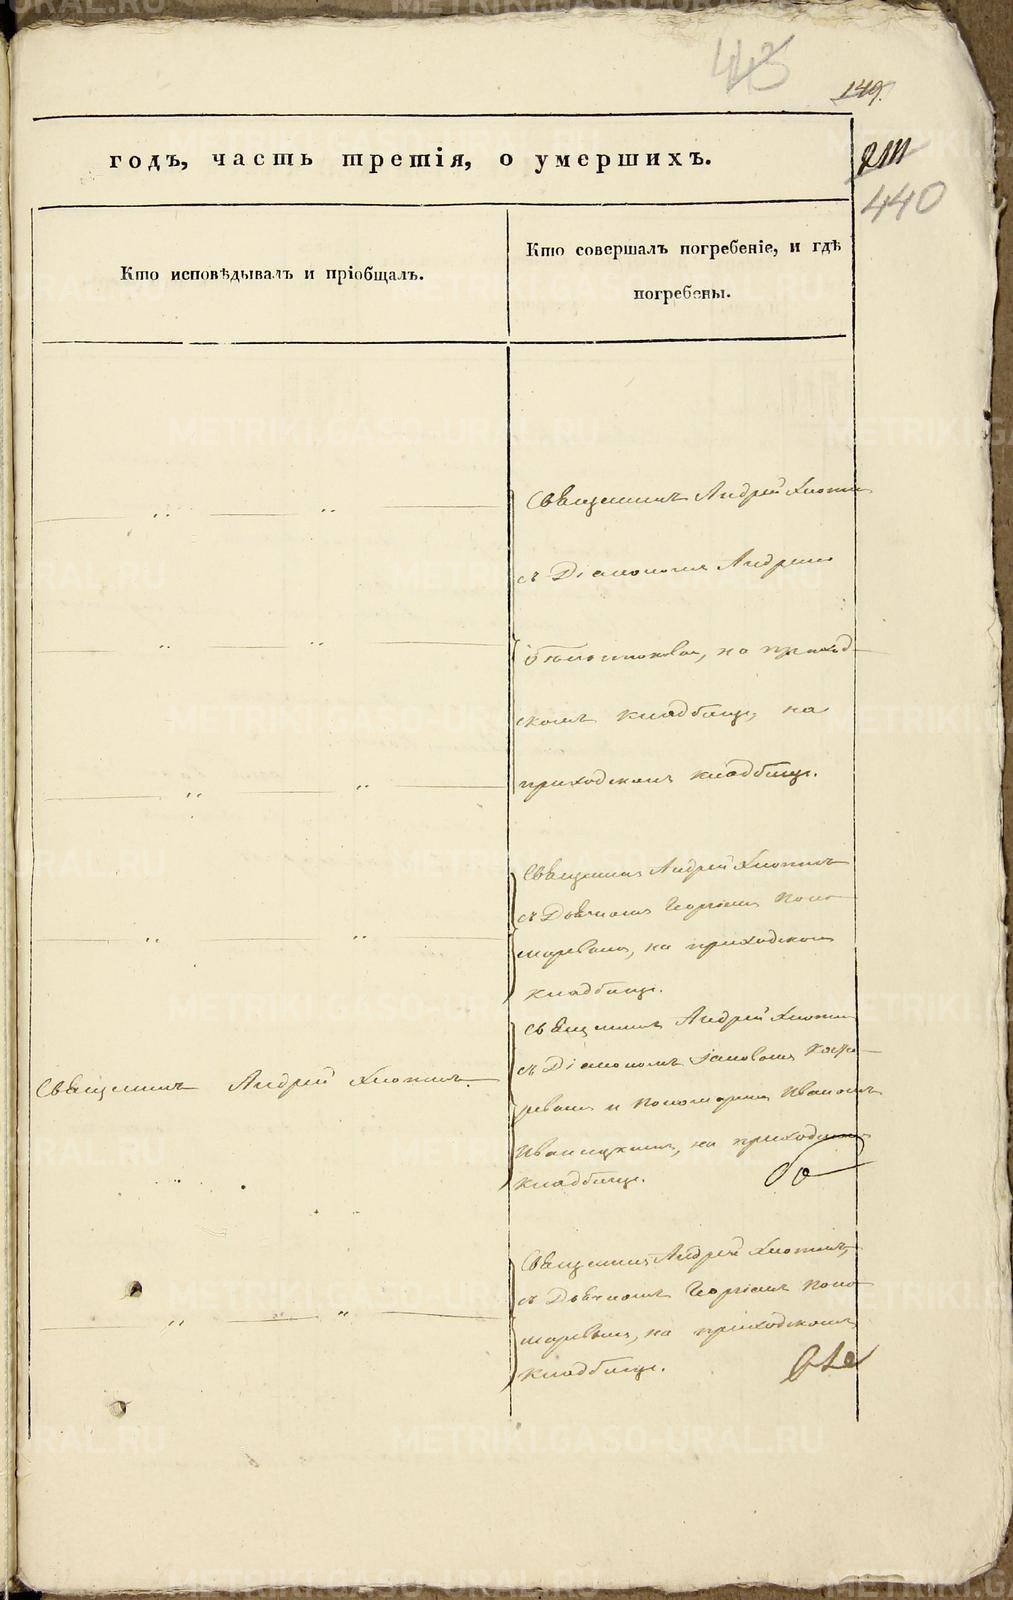 443
149.
440
годъ, часть третія, о умершихъ.
Кто исповѣдывалъ и пріобщалъ.
Кто совершалъ погребеніе, и гдѣ
погребены.
Священникъ Андрей
съ Діакономъ Андреемъ
на приход-
скомъ кладбищѣ, на
приходскомъ кладбищѣ.
Священникъ Андрей
съ Дьячкомъ Георгіемъ Поно-
маревымъ, на приходскомъ
кладбищѣ.
Священникъ Андрей
съ Діакономъ Іаковомъ
и Пономаремъ Иваномъ
на приходскомъ
кладбищѣ.
Священникъ Андрей
Священникъ Андрей
съ Дьячкомъ Георгіемъ Поно-
маревымъ, на приходскомъ
кладбищѣ.
METRIKI.GASO-URAL.RU